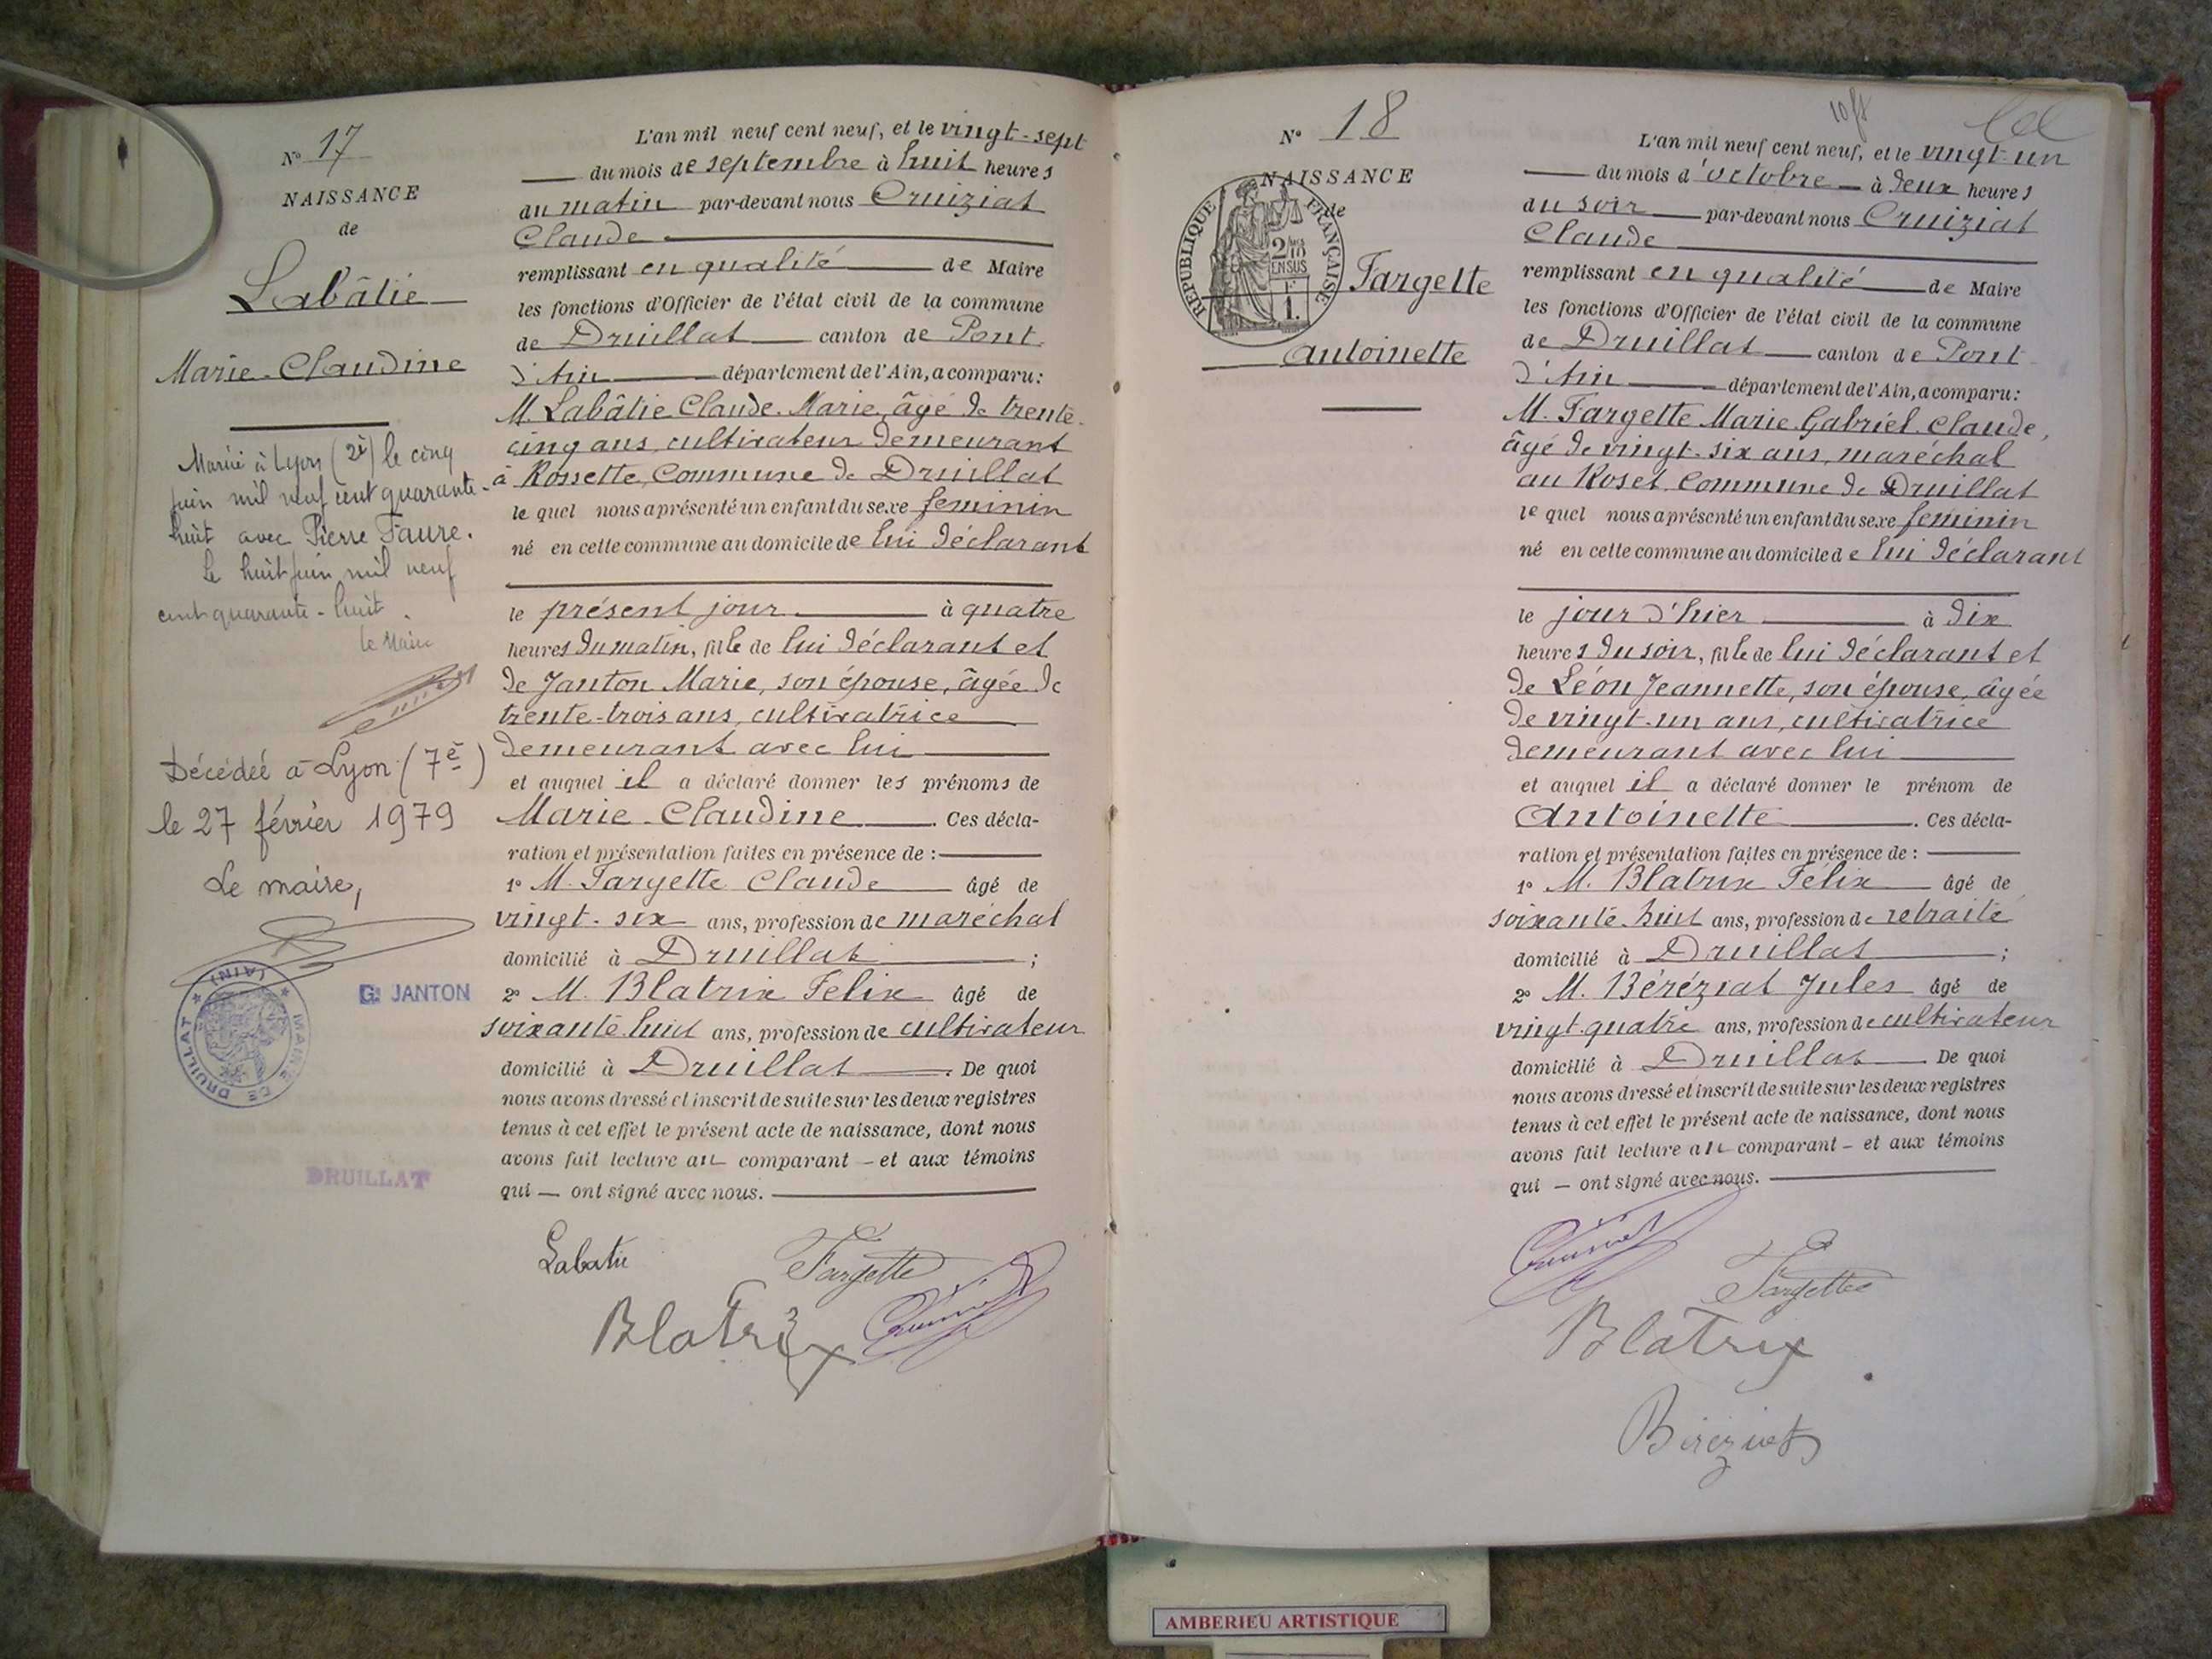 N° 17
NAISSANCE
de
Labâtie
Marie-Claudine
Mariée à Lyon (2è) le cinq
juin mil neuf cent quarante-
huit avec Pierre Faure.
Le huit juin mil neuf
cent quarante-huit.
Le Maire
Décédée à Lyon (7è)
le 27 février 1979
Le maire,
MAIRIE DE DRUILLAT * (AIN) *
G. JANTON
DRUILLAT
L'an mil neuf cent neuf, et le vingt-sept
du mois de septembre à huit heures
du matin par-devant nous Cruiziat
Claude
remplissant en qualité de Maire
les fonctions d'Officier de l'état civil de la commune
de Druillat canton de Pont
d'Ain département de l'Ain, a comparu:
M. Labâtie Claude Marie, âgé de trente-
cinq ans, cultivateur demeurant
à Rossette, Commune de Druillat
le quel nous a présenté un enfant du sexe féminin
né en cette commune au domicile de lui déclarant
le présent jour à quatre
heures du matin, fille de lui déclarant et
de Janton Marie, son épouse, âgée de
trente-trois ans, cultivatrice
demeurant avec lui
et auquel il a déclaré donner les prénoms de
Marie-Claudine. Ces décla-
ration et présentation faites en présence de :
1° M. Fargette Claude âgé de
vingt-six ans, profession de maréchal
domicilié à Druillat ;
2° M. Blatrix Felix âgé de
soixante huit ans, profession de cultivateur
domicilié à Druillat. De quoi
nous avons dressé et inscrit de suite sur les deux registres
tenus à cet effet le présent acte de naissance, dont nous
avons fait lecture au comparant - et aux témoins
qui — ont signé avec nous.
Labatie
Fargette
Blatrix
Cruiziat
N° 18
NAISSANCE
de
RÉPUBLIQUE FRANÇAISE
2/10 EN SUS
1 F.
Fargette
Antoinette
10 f
L'an mil neuf cent neuf, et le vingt-un
du mois d'octobre à deux heures
du soir par-devant nous Cruiziat
Claude
remplissant en qualité de Maire
les fonctions d'Officier de l'état civil de la commune
de Druillat canton de Pont
d'Ain département de l'Ain, a comparu:
M. Fargette Marie Gabriel Claude,
âgé de vingt-six ans, maréchal
au Roset, Commune de Druillat
le quel nous a présenté un enfant du sexe féminin
né en cette commune au domicile de lui déclarant
le jour d'hier à dix
heures du soir, fille de lui déclarant et
de Léon Jeannette, son épouse, âgée
de vingt-un ans, cultivatrice
demeurant avec lui
et auquel il a déclaré donner le prénom de
Antoinette. Ces décla-
ration et présentation faites en présence de :
1° M. Blatrix Félix âgé de
soixante-huit ans, profession de retraité
domicilié à Druillat ;
2° M. Béréziat Jules âgé de
vingt-quatre ans, profession de cultivateur
domicilié à Druillat. De quoi
nous avons dressé et inscrit de suite sur les deux registres
tenus à cet effet le présent acte de naissance, dont nous
avons fait lecture au comparant - et aux témoins
qui — ont signé avec nous.
Cruiziat
Fargette
Blatrix
Béréziat
AMBERIEU ARTISTIQUE